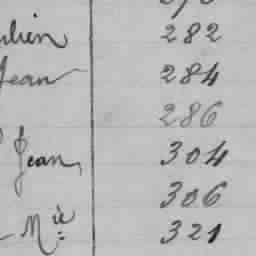 282
Jean 284
286
Jean, 304
306
Mie 321